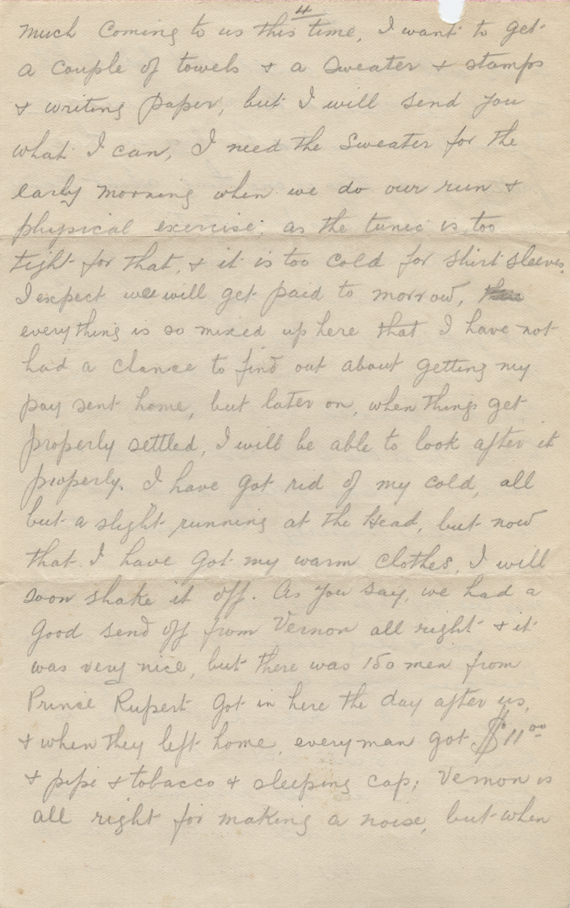 4
much coming to us this time, I want to get
a couple of towels & a sweater & stamps
& writing paper, but I will send you
what I can, I need the sweater for the
early morning when we do our run &
physical exercise; as the tunic is too
tight for that, & it is too cold for shirt sleeves.
I expect we will get paid to morrow,
everything is so mixed up here that I have not
had a chance to find out about getting my
pay sent home, but later on, when things get
properly settled, I will be able to look after it
properly. I have got rid of my cold, all
but a slight running at the head, but now
that I have got my warm clothes, I will
soon shake it off. As you say, we had a
good send off from Vernon all right & it
was very nice, but there was 150 men from
Prince Rupert got in here the day after us,
& when they left home, every man got $11.00
& pipe & tobacco & sleeping cap; Vernon is
all right for making a noise, but when